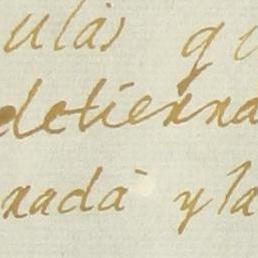 ulas q
detienna
nada y la